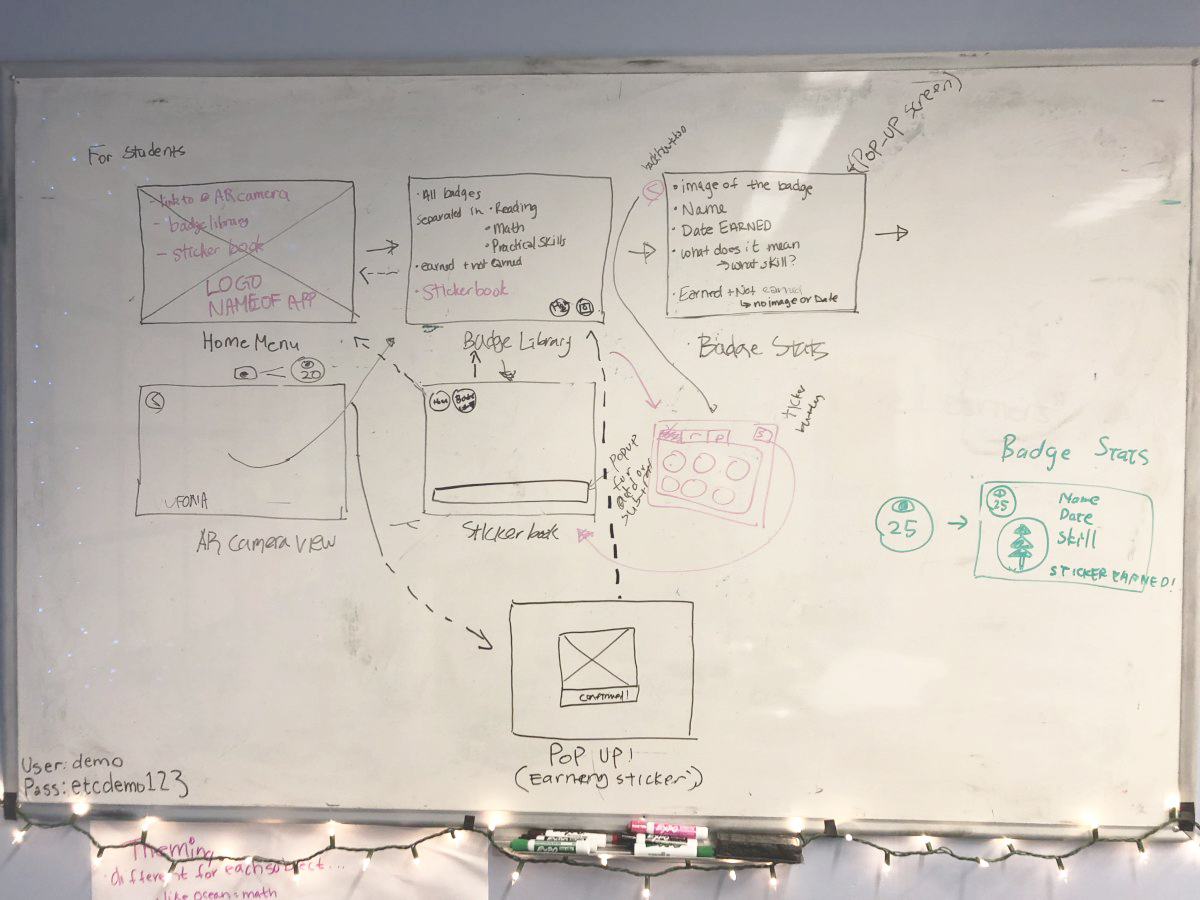 For Students
- link to AR camera
- badge library
- sticker book
LOGO
NAME OF APP
Home Menu
• All badges
separated in • Reading
• Math
• Practical Skills
• earned + not earned
• Stickerbook
Badge Library
back button
• image of the badge
• Name
• Date EARNED
• what does it mean
→ what skill?
• Earned + Not earned
↳ no image or Date
Badge Stats
(POP-UP Screen)
20
UFONIA
AR camera view
Sticker book
POPUP
for
r
P
S
POP UP!
(Earning sticker)
confirmed!
Badge Stats
25
25
Name
Date
Skill
STICKER EARNED!
User: demo
Pass: etcdemo123
Theming
• different for each subject...
like ocean = math